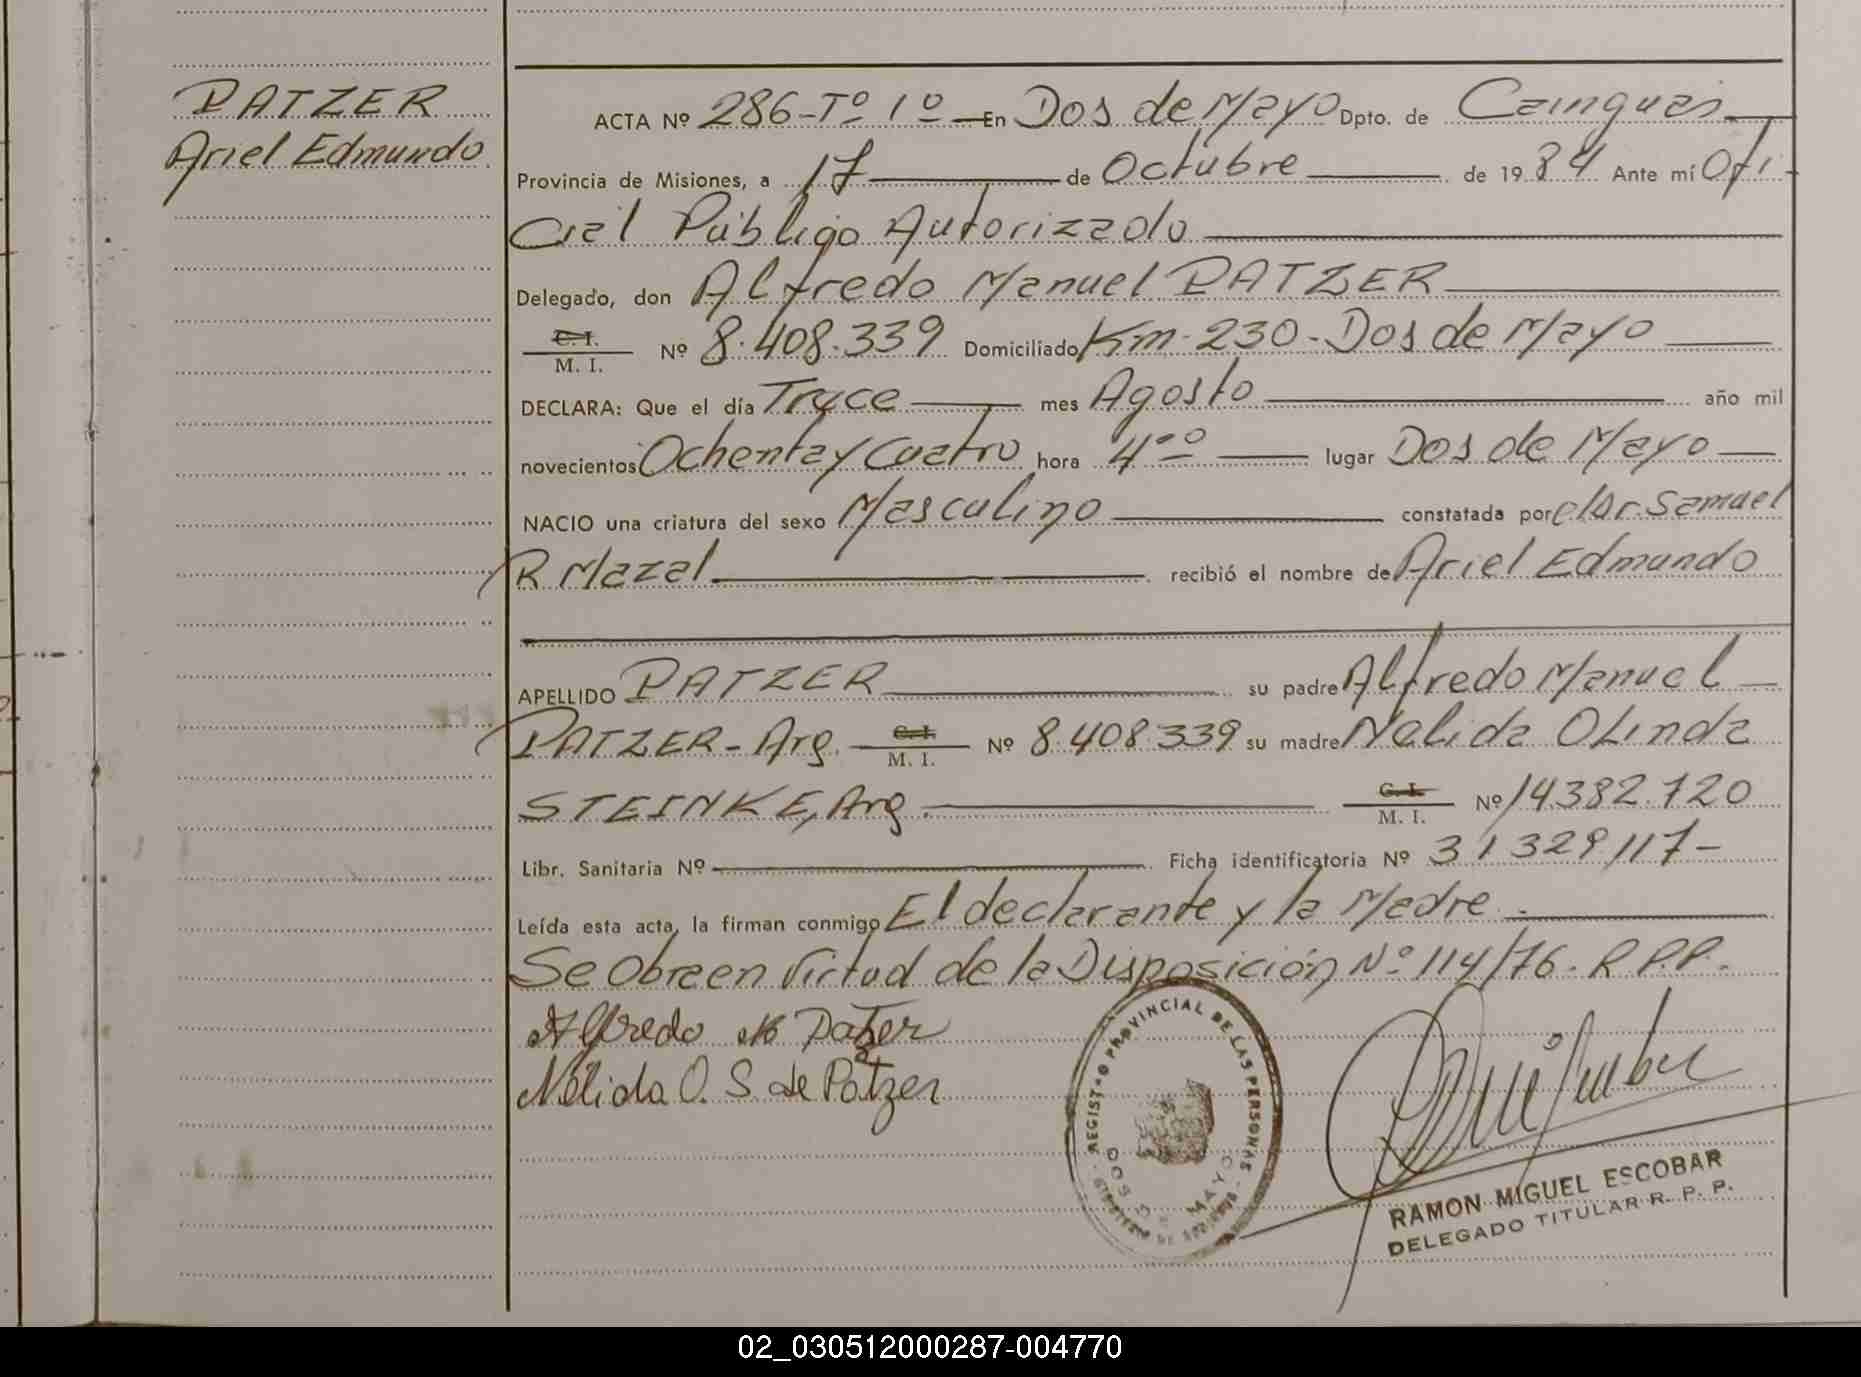 PATZER
Ariel Edmundo
ACTA Nº 286-Tº 1º En Dos de Mayo Dpto. de Cainguas
Provincia de Misiones, a 17 de Octubre de 1984 Ante mí Ofi
cial Público Autorizado
Delegado, don Alfredo Manuel PATZER
C. I.
M. I. Nº 8.408.339 Domiciliado Km-230-Dos de Mayo
DECLARA: Que el día Trece mes Agosto año mil
novecientos Ochenta y Cuatro hora 4ºº lugar Dos de Mayo
NACIO una criatura del sexo Masculino constatada por el dr. Samuel
R Mazal recibió el nombre de Ariel Edmundo
APELLIDO PATZER su padre Alfredo Manuel
PATZER-Arg. C. I. M. I. Nº 8.408.339 su madre Nelida OLinda
STEINKE, Arg. C. I. M. I. Nº 14382.720
Libr. Sanitaria Nº Ficha identificatoria Nº 31329117-
Leída esta acta, la firman conmigo El declarante y la Madre.
Se Obra en Virtud de la Disposición Nº 114/76. R P.P.
Alfredo M Patzer
Nélida O. S. de Patzer
REGISTRO PROVINCIAL DE LAS PERSONAS
DOS DE MAYO
RAMON MIGUEL ESCOBAR
DELEGADO TITULAR R. P. P.
02_030512000287-004770